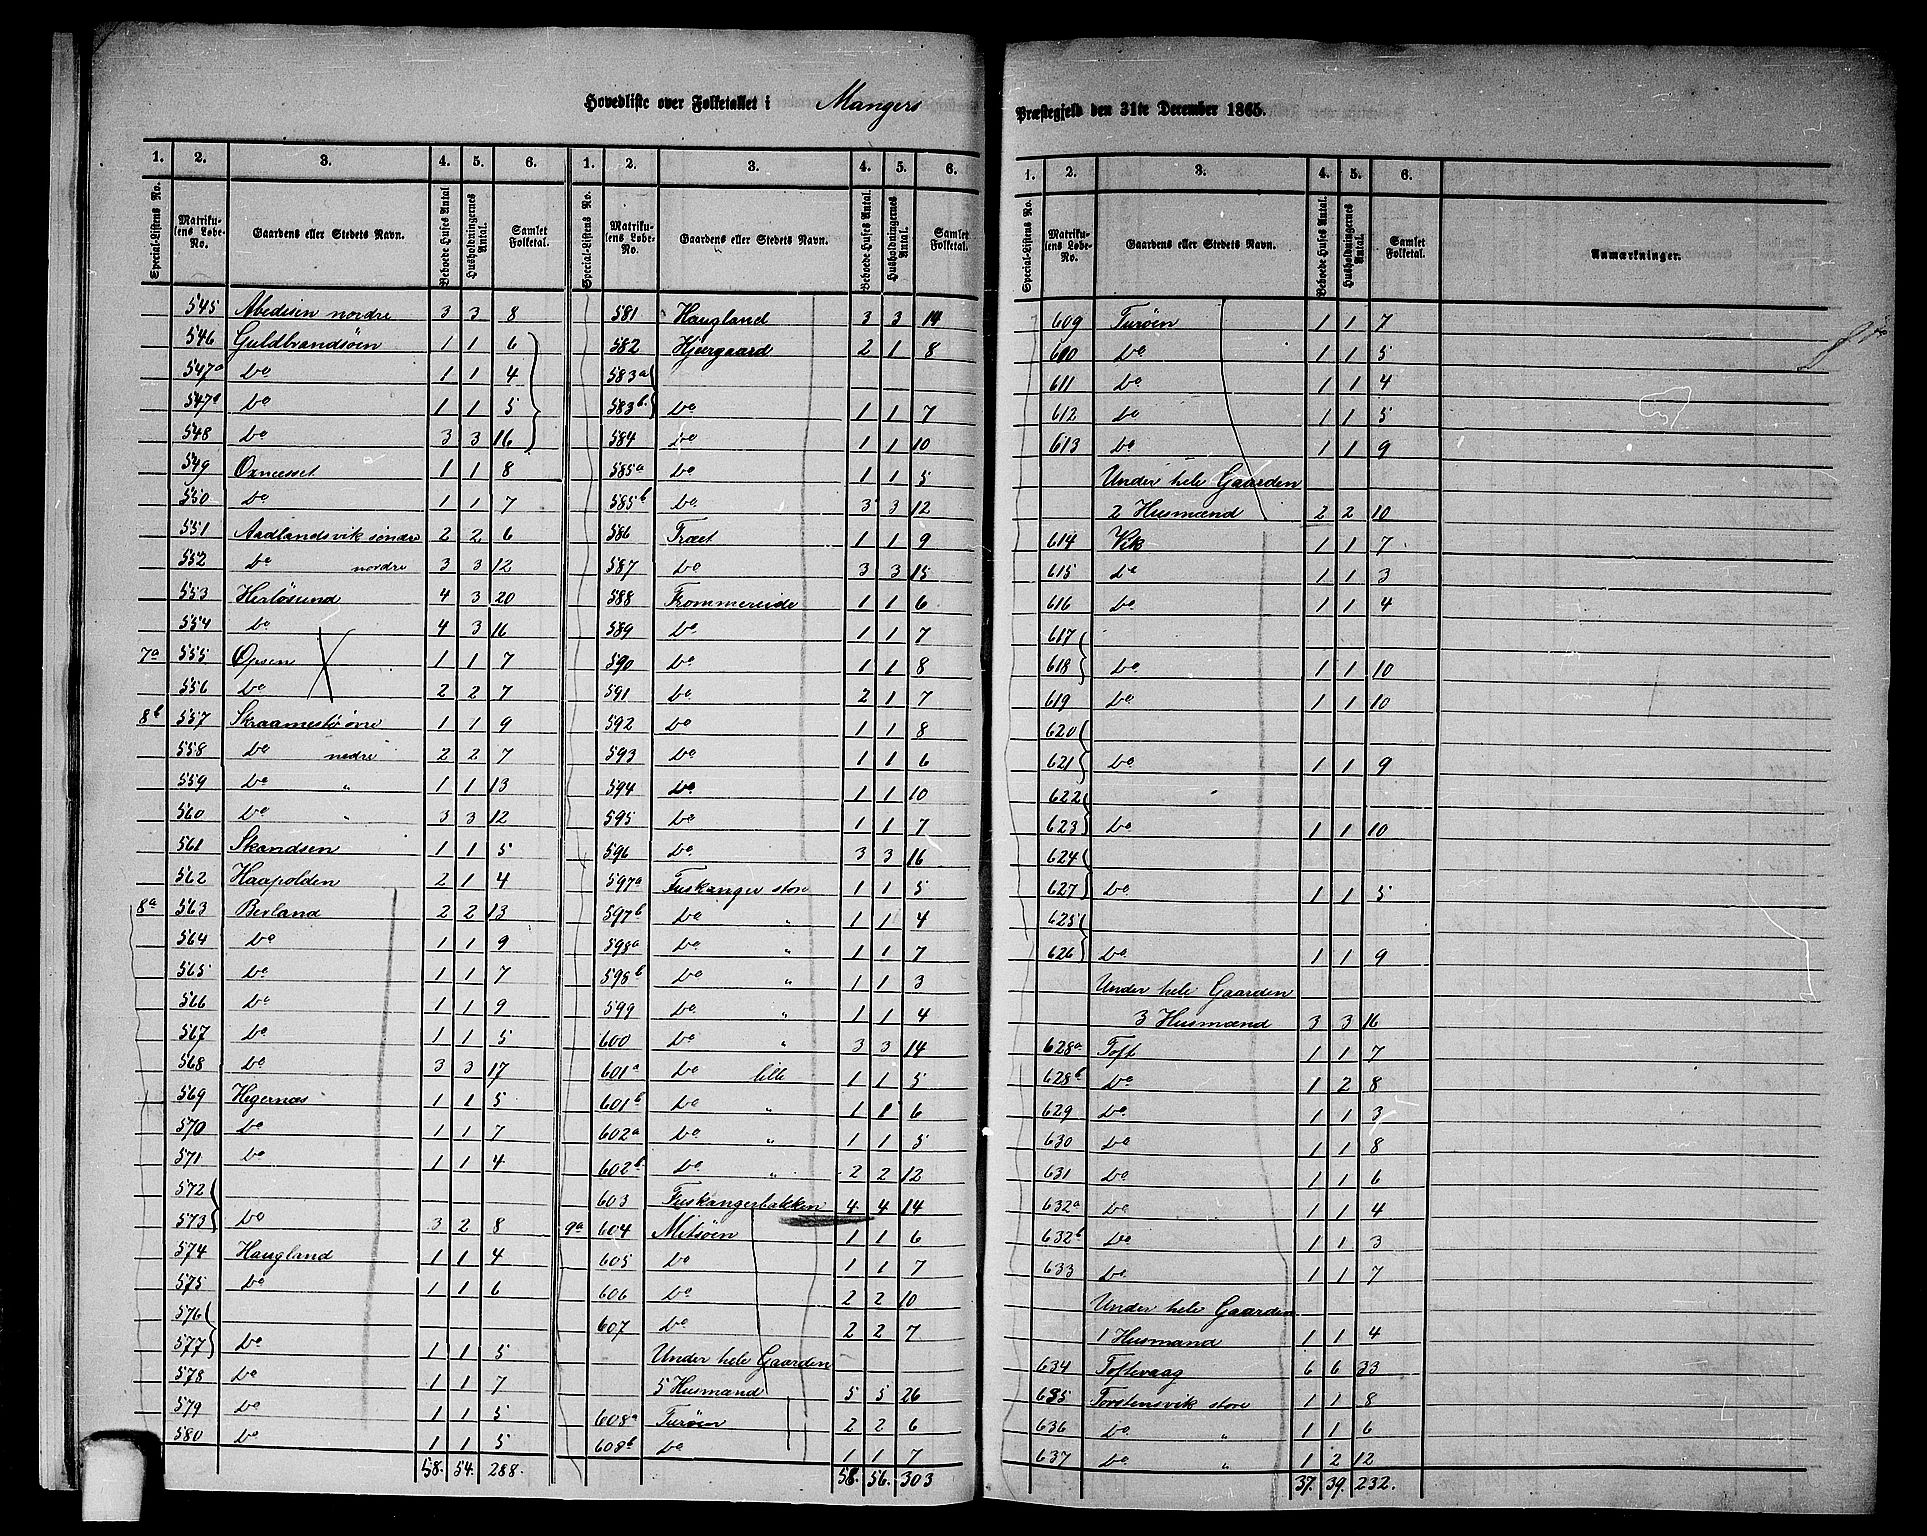 Hovedliste over Folketallet i Mangers
Præstegjeld den 31te December 1865.
1. 2. 3. 4. 5. 6.
Special-Listens No. Matrikulens Løbe-No. Gaardens eller Stedets Navn. Beboede Huses Antal Husholdningernes Antal. Samlet Folketal.
545 Abedisen nordre 3 3 8
546 Guldbrandsøen 1 1 6
547a Do 1 1 4
547b Do 1 1 5
548 Do 3 3 16
549 Oxnæsset 1 1 8
550 Do 1 1 7
551 Aadlandsvik søndre 2 2 6
552 Do nordre 3 3 12
553 Herløsund 4 3 20
554 Do 4 3 16
7a 555 Opsen 1 1 7
556 Do 2 2 7
8b 557 Skraamestø øvre 1 1 9
558 Do nedre 2 2 7
559 Do " 1 1 13
560 Do " 3 3 12
561 Skandsen 1 1 5
562 Haapolden 2 1 4
8a 563 Berland 2 2 13
564 Do 1 1 9
565 Do 1 1 7
566 Do 1 1 9
567 Do 1 1 5
568 Do 3 3 17
569 Hegernæs 1 1 5
570 Do 1 1 7
571 Do 1 1 4
572
573 Do 3 2 8
574 Haugland 1 1 4
575 Do 1 1 6
576
577 Do 1 1 5
578 Do 1 1 7
579 Do 1 1 5
580 Do 1 1 5
58. 54. 288.
1. 2. 3. 4. 5. 6.
Special-Listens No. Matrikulens Løbe-No. Gaardens eller Stedets Navn. Beboede Huses Antal. Husholdningernes Antal. Samlet Folketal.
581 Haugland 3 3 14
582 Hjergaard 2 1 8
583a
583b Do 1 1 7
584 Do 1 1 10
585a Do 1 1 5
585b Do 3 3 12
586 Træet 1 1 9
587 Do 3 3 15
588 Frommereide 1 1 6
589 Do 1 1 7
590 Do 1 1 8
591 Do 2 1 7
592 Do 1 1 8
593 Do 1 1 6
594 Do 1 1 10
595 Do 1 1 7
596 Do 3 3 16
597a Fuskanger store 1 1 5
597b Do " 1 1 4
598a Do " 1 1 7
598b Do " 1 1 3
599 Do " 1 1 4
600 Do " 3 3 14
601a Do lille 1 1 5
601b Do " 1 1 6
602a Do " 1 1 5
602b Do " 2 2 12
603 Fuskangerbakken 4 4 14
9a 604 Mitsøen 1 1 6
605 Do 1 1 7
606 Do 2 2 10
607 Do 2 2 7
Under hele Gaarden
5 Husmænd 5 5 26
608a Turøen 2 2 6
608b Do 1 1 7
58. 56. 303
1. 2. 3. 4. 5. 6.
Special-Listens No. Matrikulens Løbe-No. Gaardens eller Stedets Navn. Beboede Huses Antal. Husholdningernes Antal. Samlet Folketal. Anmærkninger.
609 Turøen 1 1 7
610 Do 1 1 5
611 Do 1 1 4
612 Do 1 1 5
613 Do 1 1 9
Under hele Gaarden
2 Husmænd 2 2 10
614 Vik 1 1 7
615 Do 1 1 3
616 Do 1 1 4
617
618 Do 1 1 10
619 Do 1 1 10
620
621 Do 1 1 9
622
623 Do 1 1 10
624
627 Do 1 1 5
625
626 Do 1 1 9
Under hele Gaarden
3 Husmænd 3 3 16
628a Toft 1 1 7
628b Do 1 2 8
629 Do 1 1 3
630 Do 1 1 8
631 Do 1 1 6
632a Do 1 1 4
632b Do 1 1 3
633 Do 1 1 7
Under hele Gaarden
1 Husmand 1 1 4
634 Toftevaag 6 6 23
635 Torstensvik store 1 1 8
636 Do " 1 1 6
637 Do " 1 2 12
37. 39. 232.